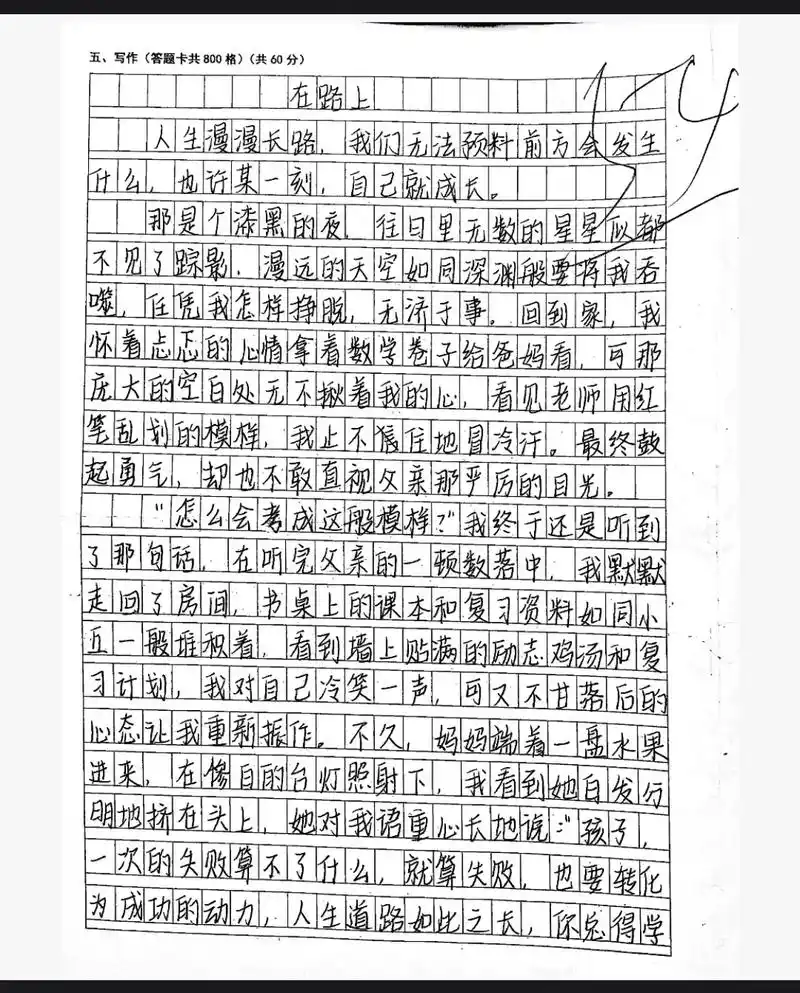 五、写作（答题卡共800格）（共60分）
54
在路上
人生漫漫长路，我们无法预料前方会发生
什么，也许某一刻，自己就成长。
那是个漆黑的夜，往日里无数的星星似都
不见了踪影，漫远的天空如同深渊般要将我吞
噬，任凭我怎样挣脱，无济于事。回到家，我
怀着忐忑的心情拿着数学卷子给爸妈看，可那
庞大的空白处无不揪着我的心，看见老师用红
笔乱划的模样，我止不住地冒冷汗。最终鼓
起勇气，却也不敢直视父亲那严厉的目光。
“怎么会考成这般模样？”我终于还是听到
了那句话，在听完父亲的一顿数落中，我默默
走回了房间，书桌上的课本和复习资料如同小
丘一般堆积着，看到墙上贴满的励志鸡汤和复
习计划，我对自己冷笑一声，可又不甘落后的
心态让我重新振作。不久，妈妈端着一盘水果
进来，在惨白的台灯照射下，我看到她白发分
明地挤在头上，她对我语重心长地说：“孩子，
一次的失败算不了什么，就算失败，也要转化
为成功的动力，人生道路如此之长，你总得学